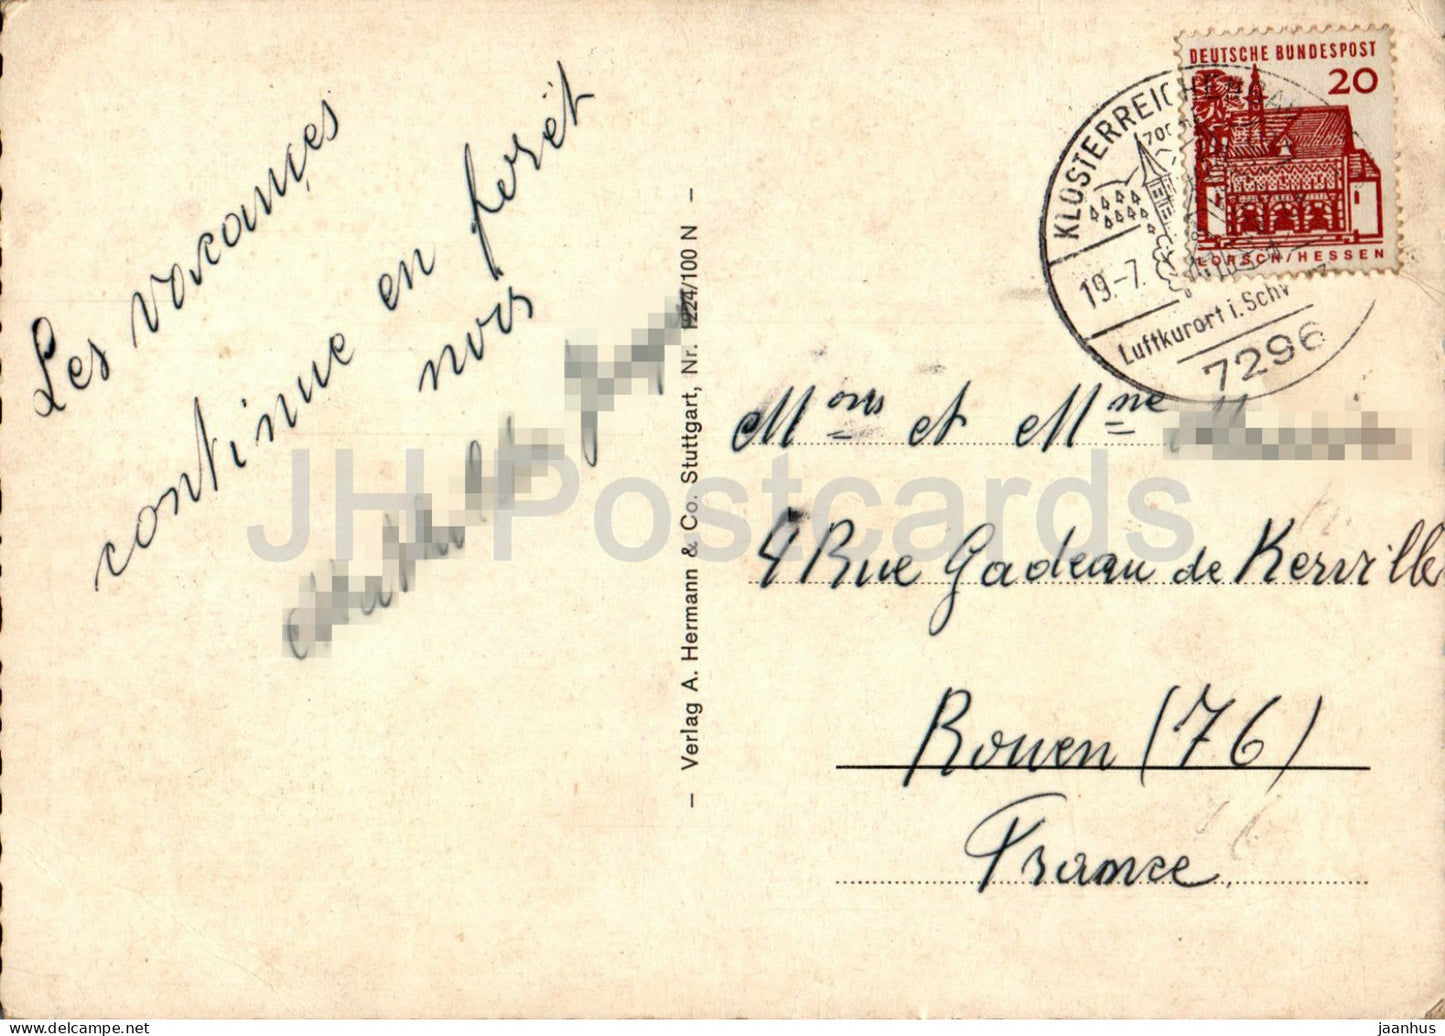 Les vacances
continue en forêt
noir
- Verlag A. Hermann & Co. Stuttgart, Nr. 1224/100 N -
DEUTSCHE BUNDESPOST
20
LORSCH/HESSEN
KLOSTERREICHENBACH
19.-7.
Luftkurort i. Schw
7296
Mons et Mme
4 Rue Gadeau de Kerville
Rouen (76)
France
JH Postcards
jaanhus
delcampe.net